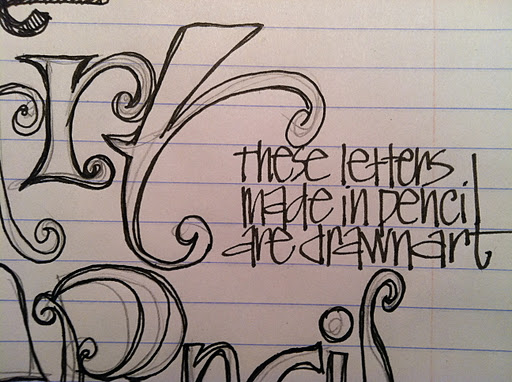 rt
these letters
made in pencil
are drawn art
Pencil